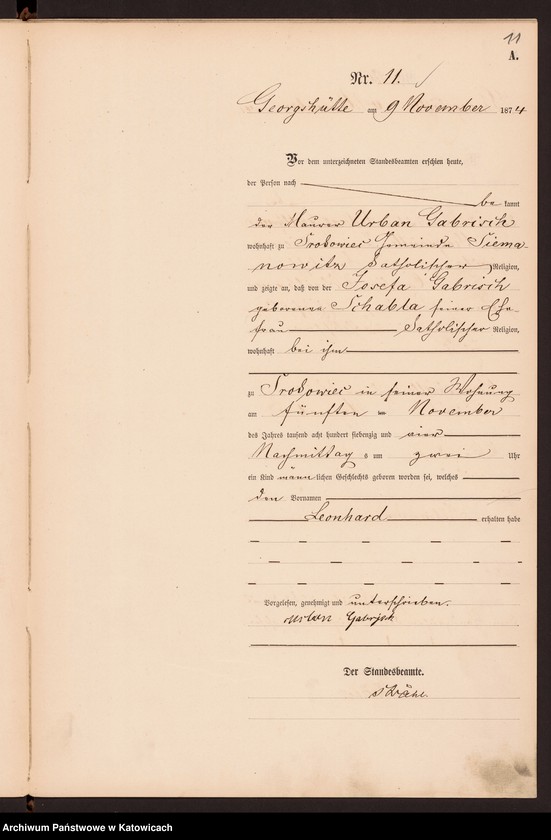 11
A.
Nr. 11.
Georgshütte am 9 November 1874
Vor dem unterzeichneten Standesbeamten erschien heute,
der Person nach
be kannt
der Maurer Urban Gabrisch
wohnhaft zu Gemeinde Siema
nowitz katholischer Religion,
und zeigte an, daß von der Josefa Gabrisch
geborenen Schabla seiner Ehe
frau katholischer Religion,
wohnhaft bei ihm
zu in seiner Wohnung
am fünften November
des Jahres tausend acht hundert siebenzig und vier
Nachmittag s um zwei Uhr
ein Kind männ lichen Geschlechts geboren worden sei, welches
den Vornamen
Leonhard erhalten habe
Vorgelesen, genehmigt und unterschrieben.
Urban Gabrisch
Der Standesbeamte.
Archiwum Państwowe w Katowicach